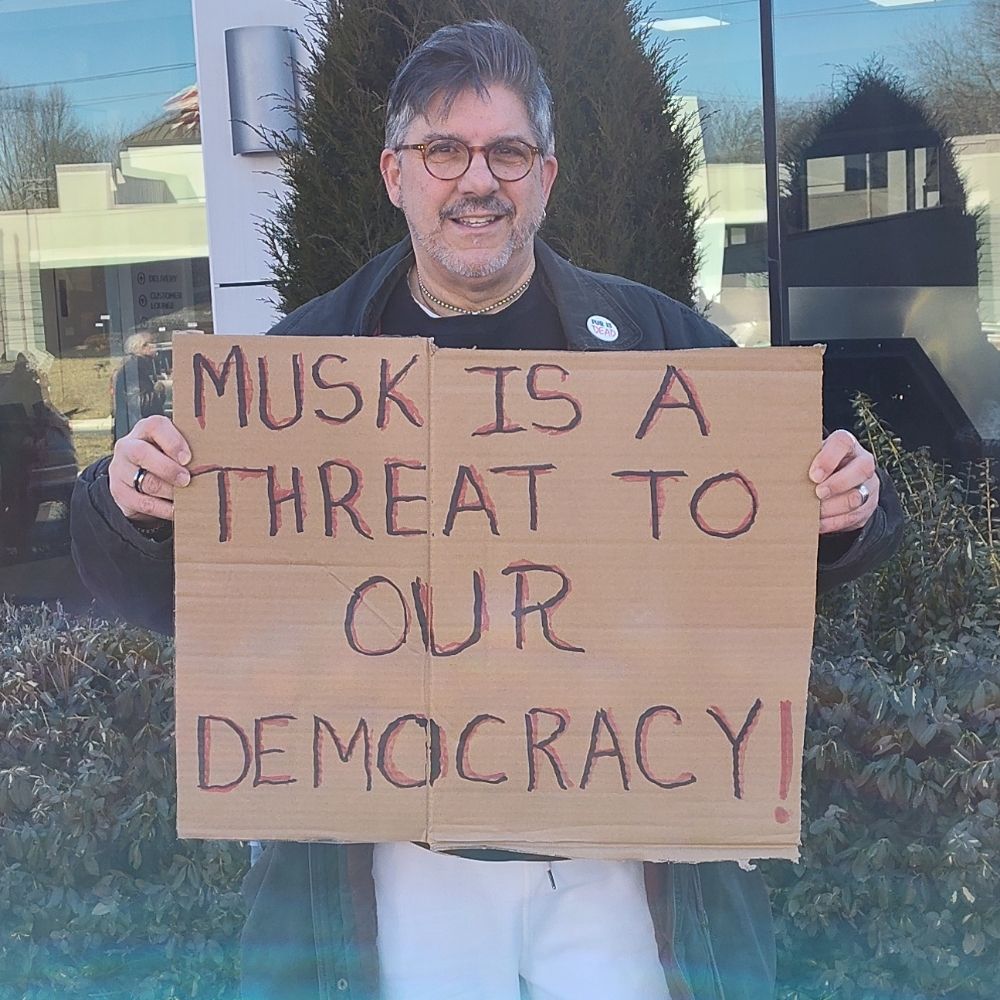 DELIVERY
CUSTOMER
LOUNGE
DEAD
MUSK IS A
THREAT TO
OUR
DEMOCRACY!